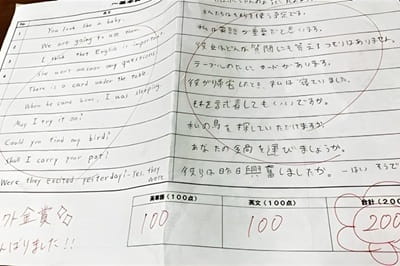 You look like a baby.
We are going to use them.
I think that English is important.
She won't answer my questions.
There is a card under the table.
When he came home, I was sleeping.
May I try it on?
Could you find my bird?
Shall I carry your pot?
Were they excited yesterday? - Yes, they were
私は英語が重要だと思います。
彼女はどんな質問にも答えるつもりはありません。
テーブルの下に カードがあります。
彼が帰宅したとき、私は寝ていました。
それを試着してもいいですか。
私の鳥を探していただけますか
あなたの鍋を運びましょうか。
彼らは昨日興奮しましたか。ーはい そうで
英単語(100点)
英文(100点)
合計(200
100
100
200
クト金賞
んばりました!!